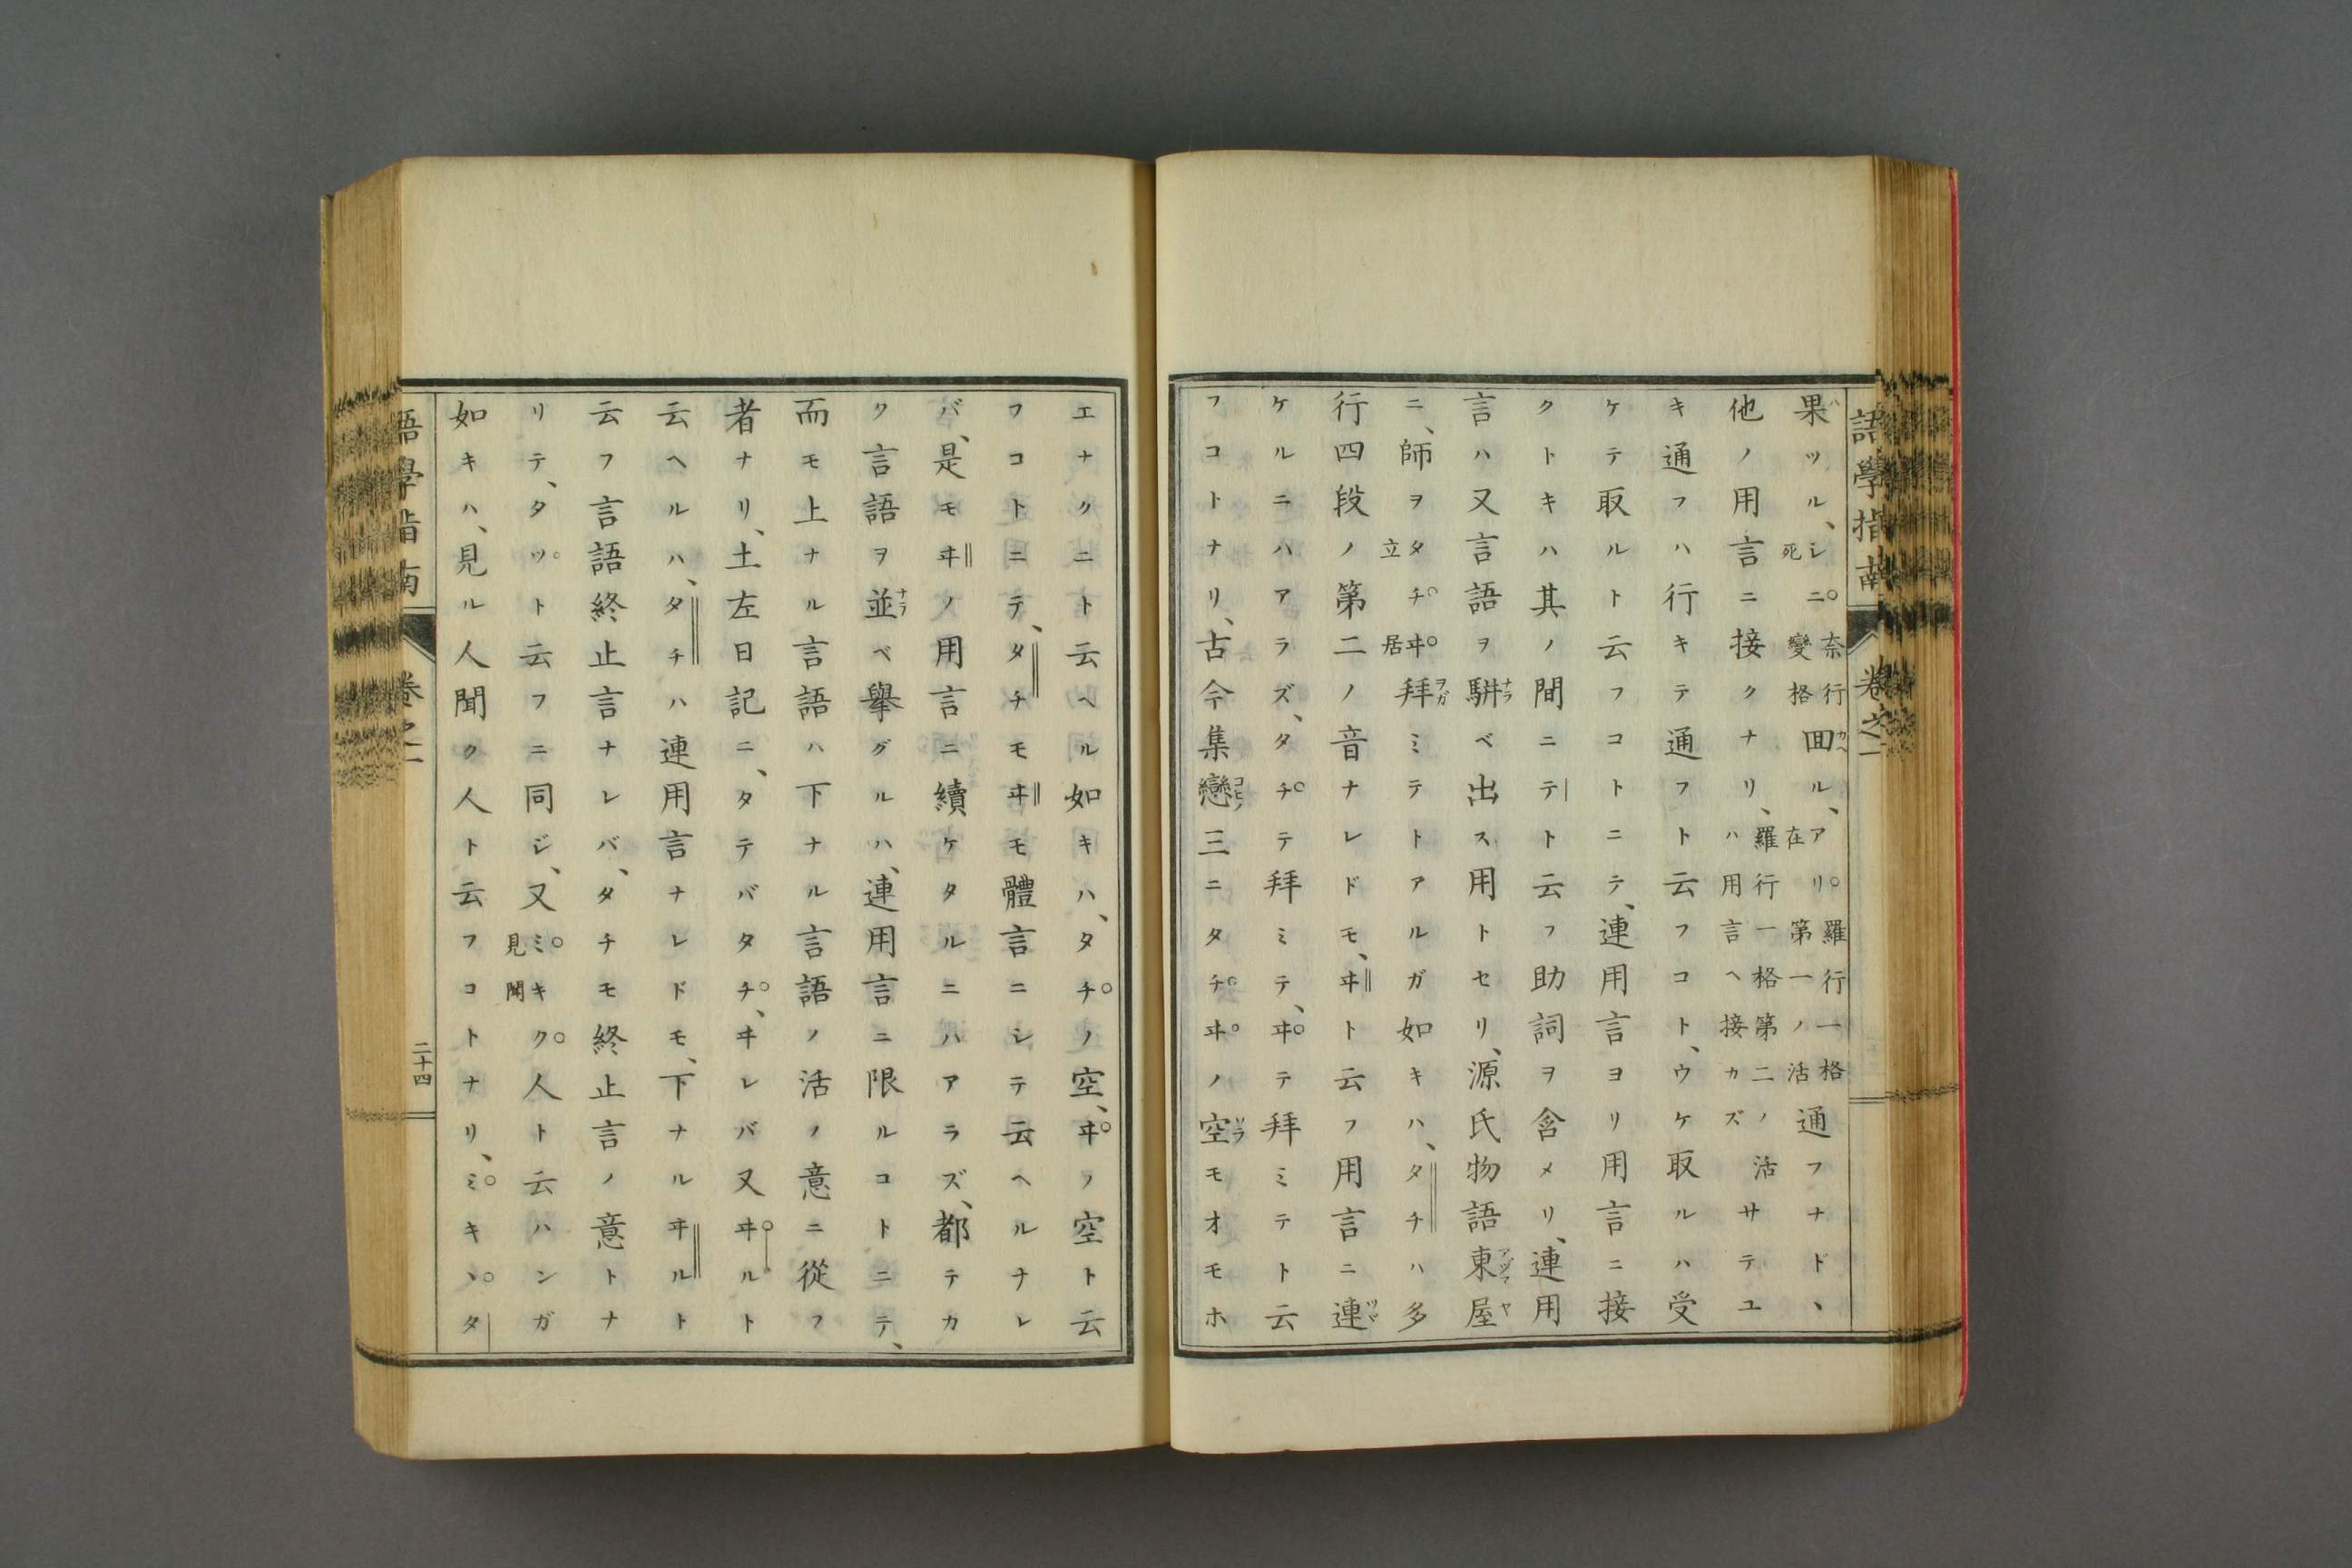 語學指南 卷之一
果ツル、シニ死奈行變格囬ル、アリ在羅行一格第一ノ活通フナド、
他ノ用言ニ接クナリ、羅行一格第二ノ活ハ用言ヘ接カズサテユ
キ通フハ行キテ通フト云フコト、ウケ取ルハ受
ケテ取ルト云フコトニテ、連用言ヨリ用言ニ接
クトキハ其ノ間ニテト云フ助詞ヲ含メリ、連用
言ハ又言語ヲ駢ベ出ス用トセリ、源氏物語東屋
ニ、師ヲタチ立ヰ居拜ミテトアルガ如キハ、タチハ多
行四段ノ第二ノ音ナレドモ、ヰト云フ用言ニ連
ケルニハアラズ、タチテ拜ミテ、ヰテ拜ミテト云
フコトナリ、古今集戀三ニタチヰノ空モオモホ
エナクニト云ヘル如キハ、タチノ空、ヰノ空ト云
フコトニテ、タチモヰモ體言ニシテ云ヘルナレ
バ、是モヰノ用言ニ續ケタルニハアラズ、都テカ
ク言語ヲ並ベ擧グルハ、連用言ニ限ルコトニテ、
而モ上ナル言語ハ下ナル言語ノ活ノ意ニ從フ
者ナリ、土左日記ニ、タテバタチ、ヰレバ又ヰルト
云ヘルハ、タチハ連用言ナレドモ、下ナルヰルト
云フ言語終止言ナレバ、タチモ終止言ノ意トナ
リテ、タツト云フニ同ジ、又ミ見キク聞人ト云ハンガ
如キハ、見ル人聞ク人ト云フコトナリ、ミキヽタ
語學指南 卷之一 二十四